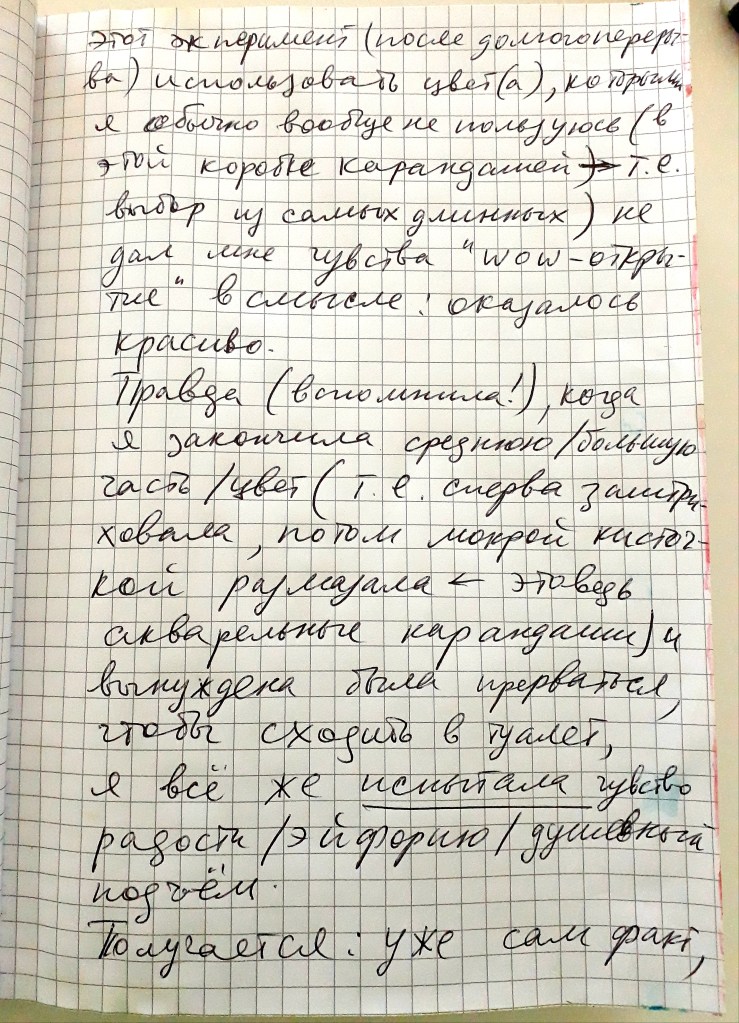 этот эксперимент (после долгого переры-
ва) использовать цвет(а), которыми
я обычно вообще не пользуюсь (в
этой коробке карандашей) → т.е.
выбор из самых длинных) не
дал мне чувства "wow-откры-
тие" в смысле: оказалось
красиво.
Правда (вспомнила!), когда
я закончила среднюю/большую
часть/цвет (т.е. сперва заштри-
ховала, потом мокрой кисточ-
кой размазала ← это ведь
акварельные карандаши) и
вынуждена была прерваться,
чтобы сходить в туалет,
я всё же испытала чувство
радости/эйфорию/душевный
подъём.
Получается: уже сам факт,